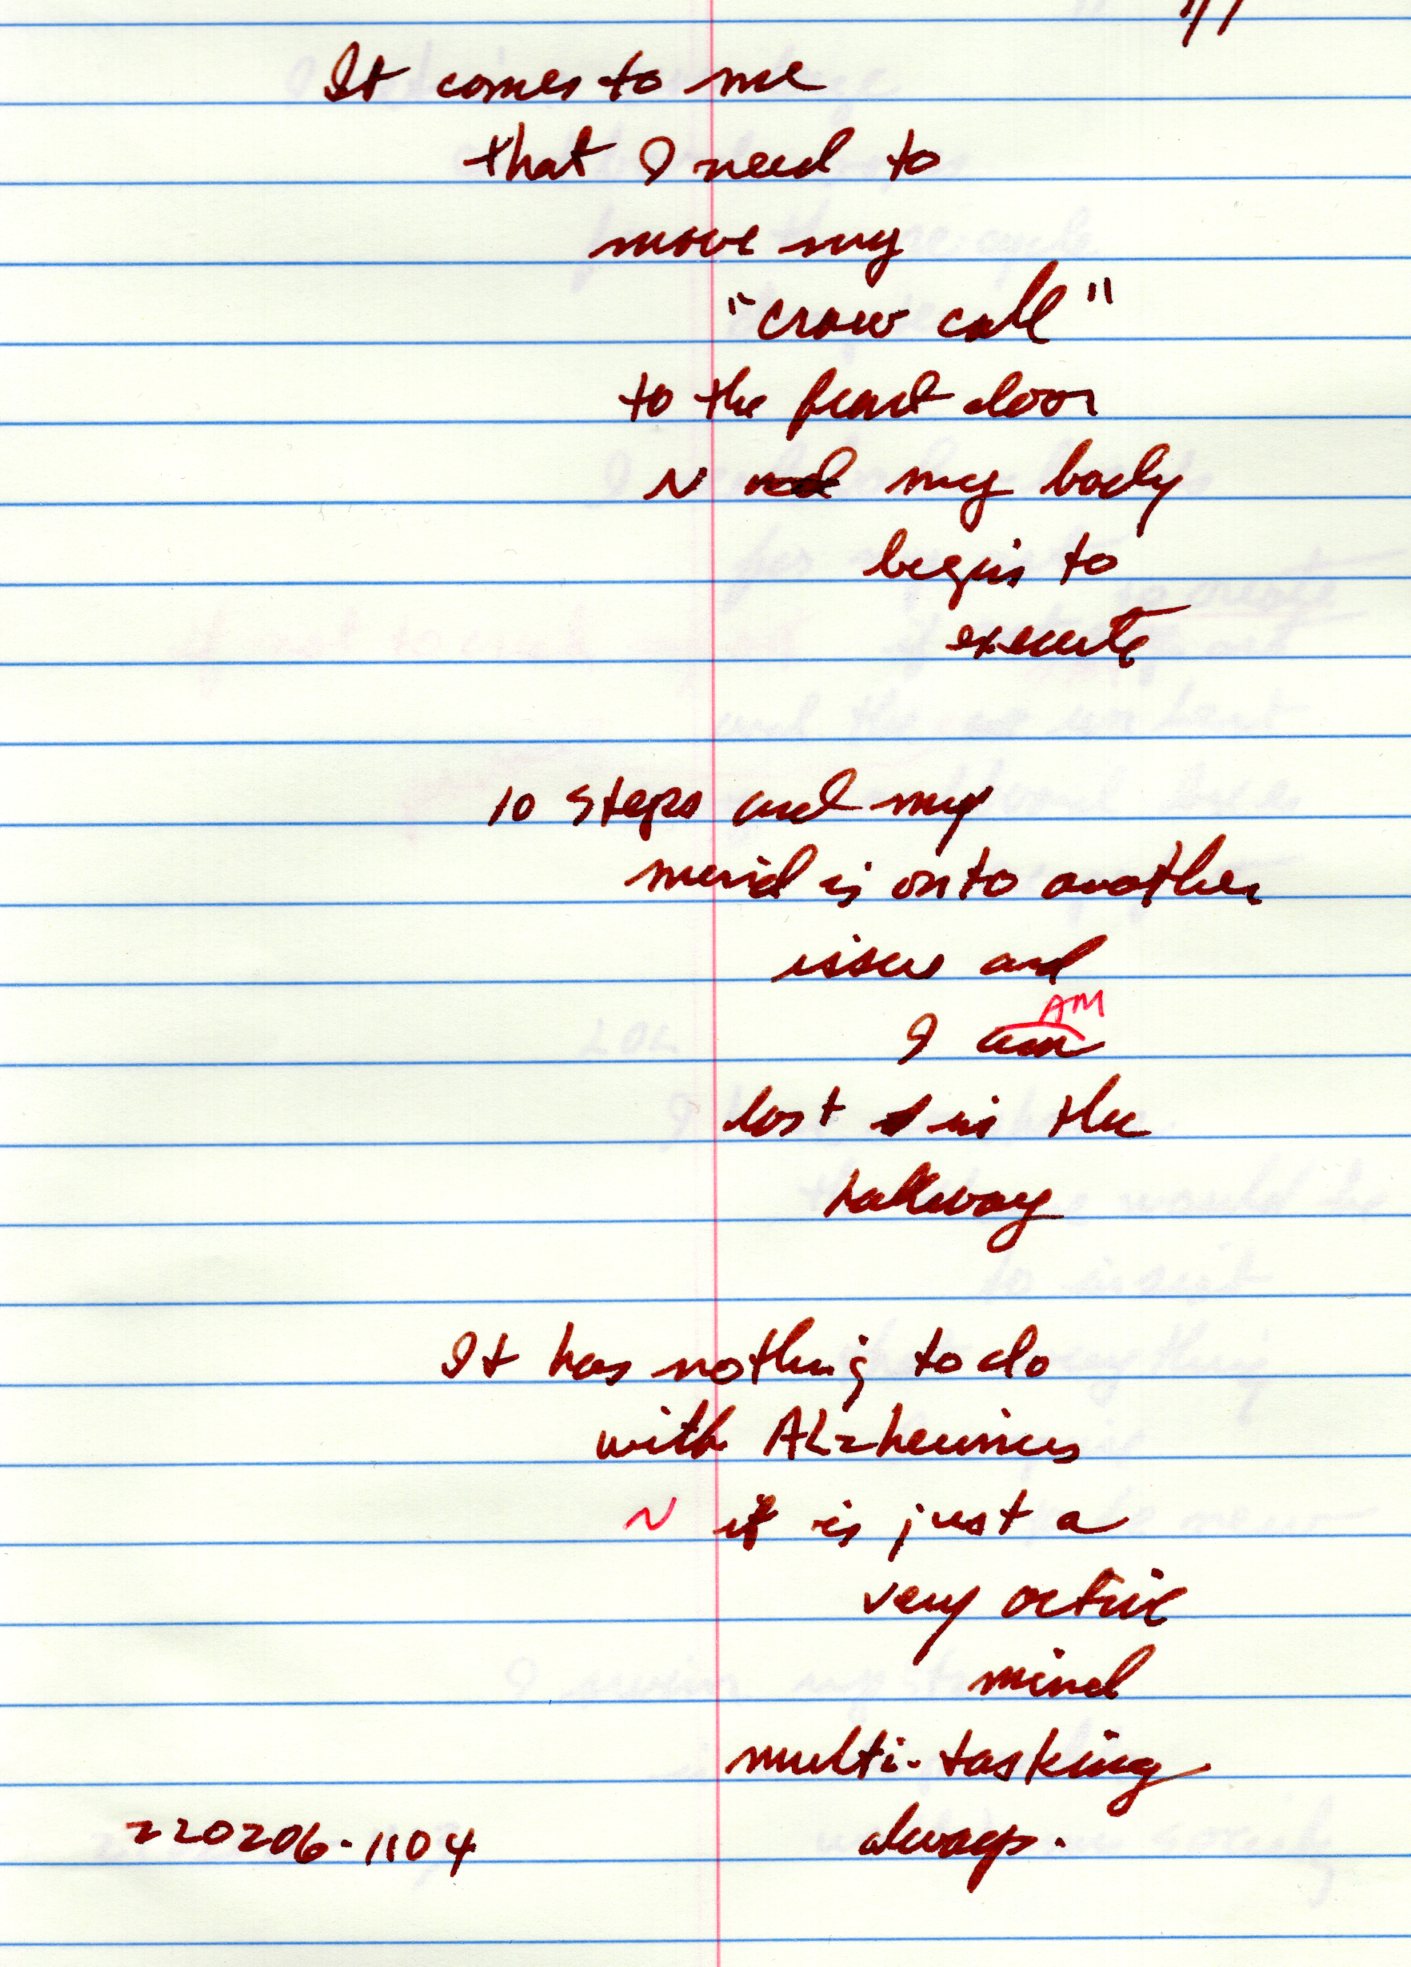 It comes to me
that I need to
move my
"crow call"
to the front door
~ and my body
begins to
execute
10 steps and my
mind is onto another
issue and
AM
I am
lost in the
hallway
It has nothing to do
with ALzheimers
~ it is just a
very active
mind
multi-tasking
always.
220206-1104